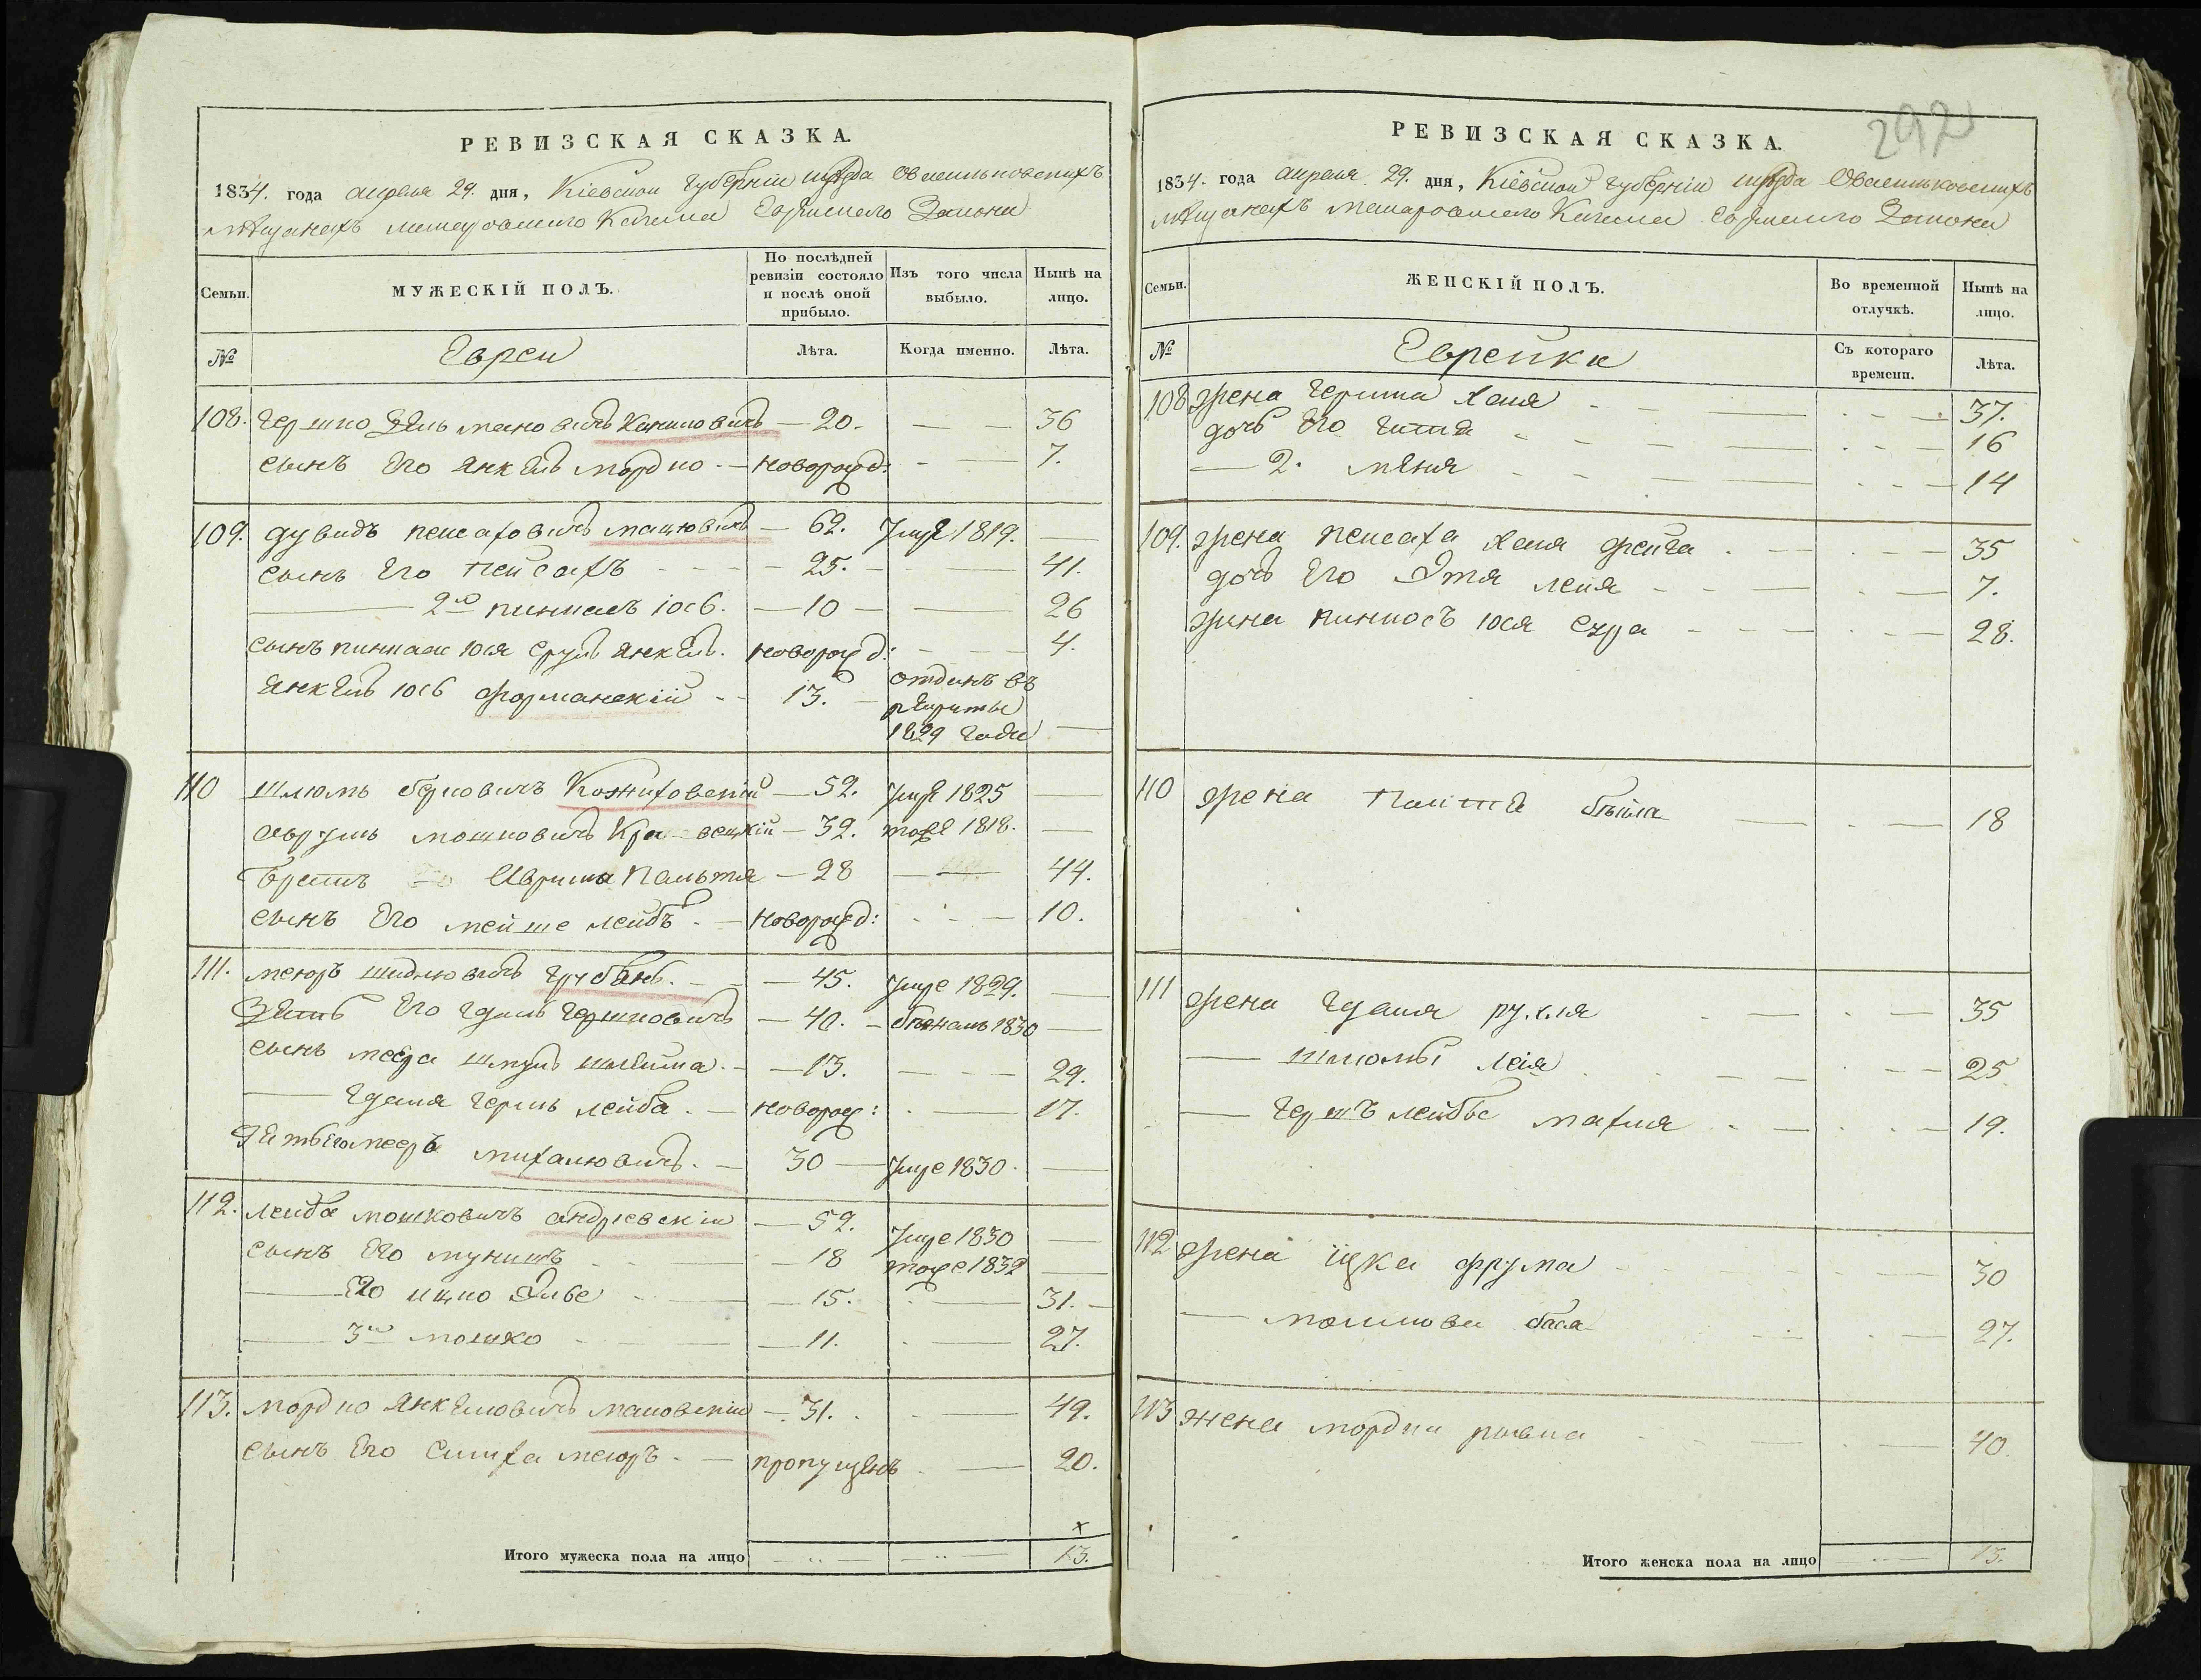 РЕВИЗСКАЯ СКАЗКА.
1834. года апреля 29. дня, Кіевской губерніи уезда о васильковскихъ
мѣщанахъ кагала еврейского Закона
Семьи.
МУЖЕСКІЙ ПОЛЪ.
По послѣдней ревизіи состояло и послѣ оной прибыло.
Изъ того числа выбыло.
Нынѣ на лицо.
№
Евреи
Лѣта.
Когда именно.
Лѣта.
108. Гершко Зельмановичъ — 20. — — 36
сынъ его Янкель мордко — новорожд: — 7.
109. дувидъ пейсаховичъ мацювичъ — 62. Умре 1819. —
сынъ его пейсахъ — 25. — 41.
2й пинкасъ іосб. — 10 — 26
сынъ пинкаса юся сруль янкель. новорожд: — 4.
янкель іосб форманскій — 13. отданъ въ
рекруты
1829 года —
110 шлюмъ берковичъ Кожиховскій — 52. Умре 1825 —
аврумъ мошковичъ — 32. тоже 1818. —
братъ Аврума Пальтя — 28 — 44.
сынъ его мейше лейбъ — новорожд: — 10.
111. меюръ шидлювичъ грубань. — 45. Умре 1829. —
Зять его гдаль Гершковичъ — 40. — бежалъ 1830 —
сынъ меера шмуль шлейма. — 13. — 29.
— гдаля гершъ лейба. — новорож: — 17.
Зять его мееръ михалювичъ. — 30 — Умре 1830. —
112. лейба мошковичъ андріевскій — 52. Умре 1830 —
сынъ его мунишъ — 18 тоже 1832 —
— 2й ицко Эльбе — 15. — 31. —
— 3й мошко — 11. — 27.
113. мордко Янкелювичъ маковскій — 31. — 49.
сынъ его симха меюръ. — пропущенъ — 20.
Итого мужеска пола на лицо 13.
292
РЕВИЗСКАЯ СКАЗКА.
1834. года апреля 29. дня, Кіевской губерніи уезда о васильковскихъ
мѣщанахъ кагала еврейского Закона
Семьи.
ЖЕНСКІЙ ПОЛЪ.
Во временной отлучкѣ.
Нынѣ на лицо.
№
Еврейки
Съ котораго времени.
Лѣта.
108 жена Гершка хая — 37.
дочь его гитя — 16
— 2. меня — 14
109. жена пейсаха хая фейга — 35
дочь его Этя лейя — 7.
жена пинкосъ юся сура — 28.
110 жена Пальтя бейла — 18
111 жена гдаля рухля — 35
— шлюмы лея — 25
— Гершъ лейбы махля — 19.
112 жена ицка фрума — 30
— мошкова бася — 27.
113 жена мордки рывка — 40.
Итого женска пола на лицо 13.